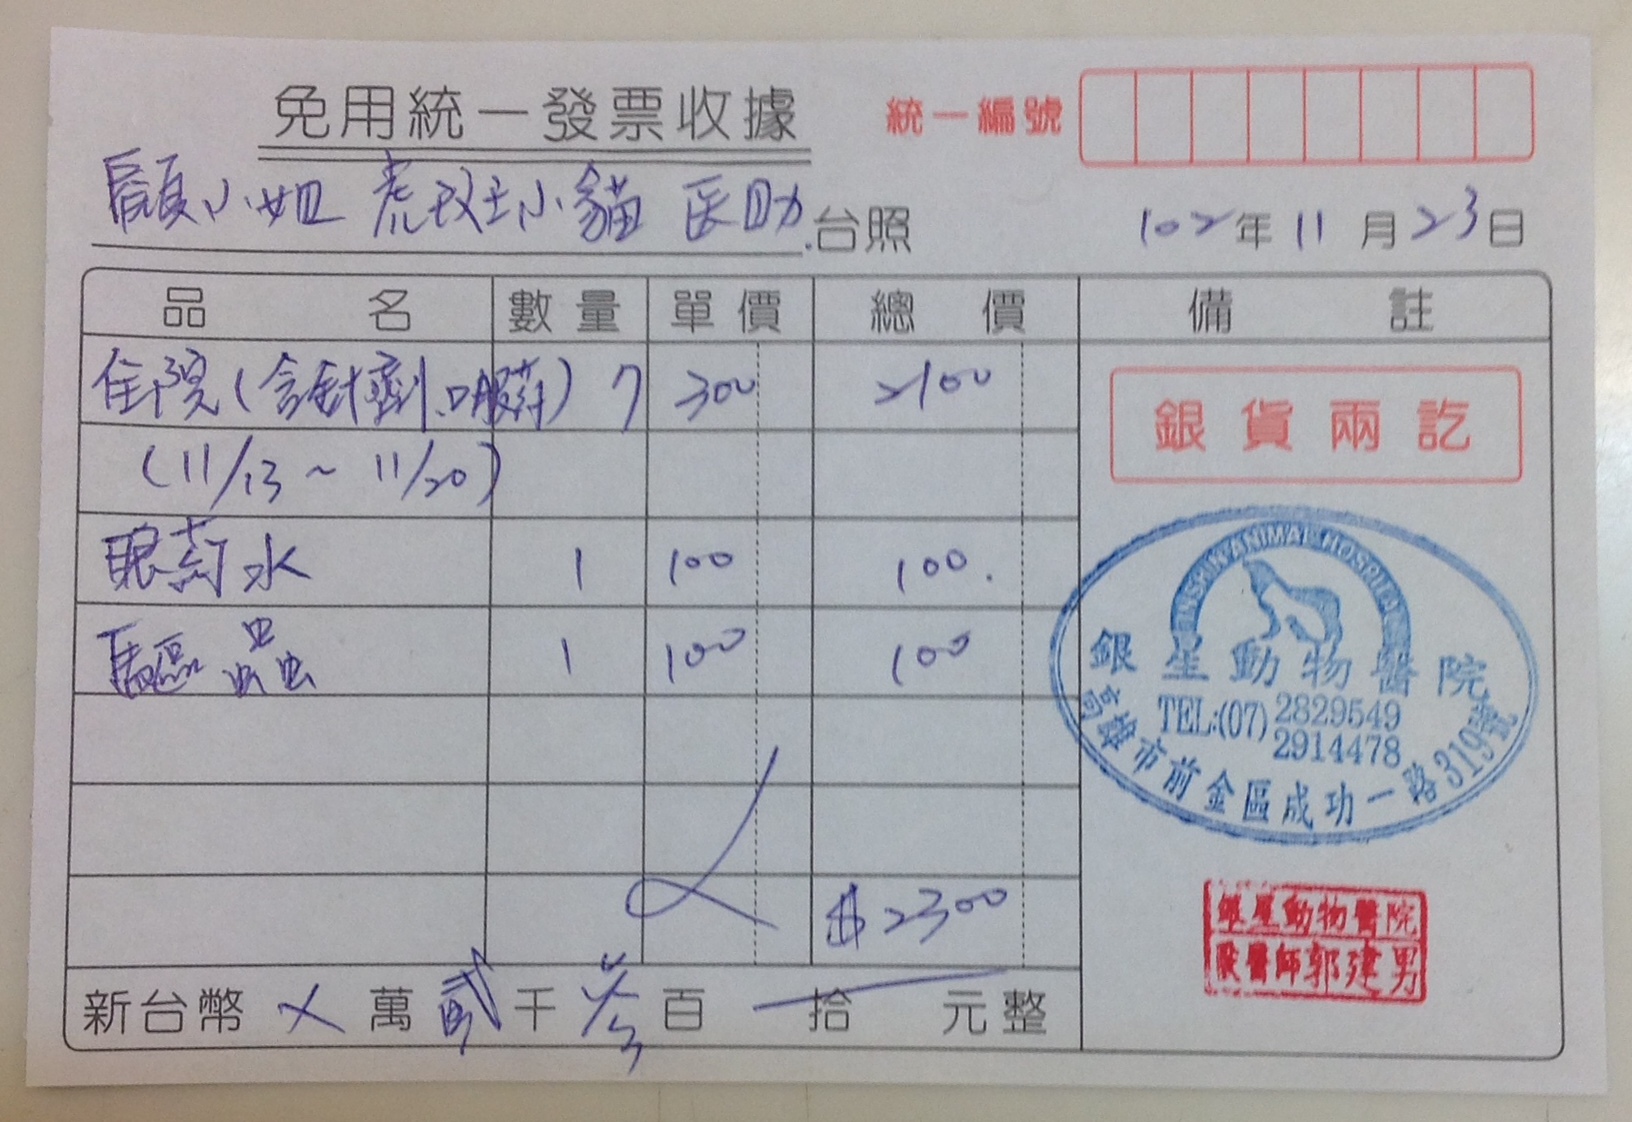 免用統一發票收據
統一編號
顧小姐 虎斑小貓 医助 台照
102年11月23日
品名 數量 單價 總價 備註
住院(含針劑、口服葯) 7 300 2100
(11/13 ~ 11/20)
眼葯水 1 100 100.
驅蟲 1 100 100
$2300
新台幣 ㄨ 萬 貳 千 參 百 拾 元整
銀貨兩訖
YINSHIN ANIMAL HOSPITAL
銀星動物醫院
TEL:(07) 2829549
2914478
高雄市前金區成功一路319號
銀星動物醫院
獸醫師郭建男